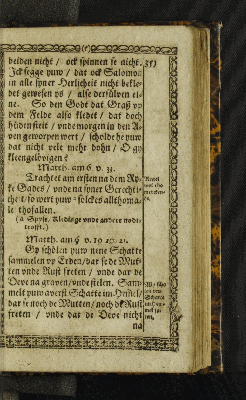 beiden nicht / ock spinnen se nicht.
Ick segge yuw / dat ock Salomon
in alle syner Herlicheit nicht bekle-
det gewesen ys / alse dersülven ei-
ne. So den Godt dat Graß vp
dem Felde also kledet / dat doch
hüden steit / vnde morgen in den A-
ven geworpen wert / scholde he yuw
dat nicht vele mehr dohn / O gy
kleengelövigen?
Matth. am 6. v. 33.
Trachtet am ersten na dem Ry-
ke Gades / vnde na syner Gerechti-
cheit / so wert yuw sölckes allthoma-
le thofallen.
(a Spyse, Kledinge vnde andere nodt-
trofft.)
Matth. am 6. v. 19. 20. 21.
Gy schölen yuw nene Schatte
sammelen vp Erden / dar se de Mut-
ten vnde Rust freten / vnde dar de
Deve na graven / vnde stelen. Sam-
melt yuw averst Schatte im Hemel /
dar se noch de Mutten / noch de Rust
freten / vnde dar de Deve nicht
na